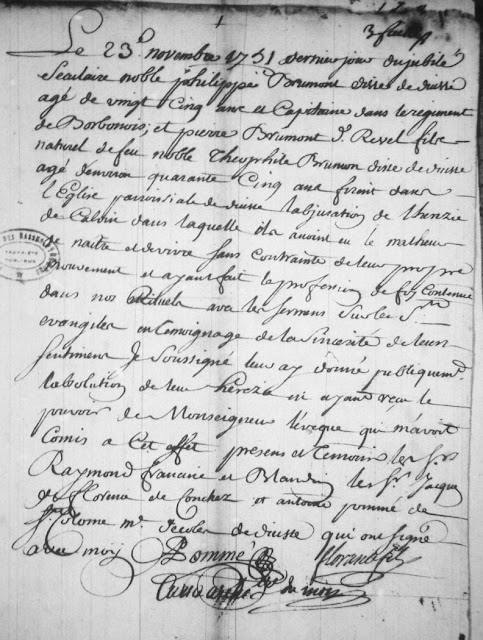 Le 23e novembre 1751 dernier jour du jubilé
seculaire noble philippe Brumont disse de diusse
agé de vingt cinq ans et Capitaine dans le regiment
de Borbonois; et pierre Brumont Sr Revel fils
naturel de feu noble Theophile Brumon disse de diusse
agé d'environ quarante Cinq ans firent dans
l'Eglise parroissiale de diusse l'abjuration de l'herezie
de Calvin dans laquelle ils avoint eu le malheur
de naitre et de vivre sans contrainte de leur propre
mouvement et ayant fait le profession de foy Contenue
dans nos Rituels avec les sermens sur les Sts
evangiles en temoignage de la Sincerité de leurs
sentimens Je Soussigné leur ay donné publiquemt
l'absolution de leur herezie en ayant reçu le
pouvoir de Monseigneur l'eveque qui m'avoit
Comis a Cet effet presens et temoins les Srs
Raymond et Blandin les Srs Jacques
de florence de Conchez et antoine pommé de
St me d'ecole de diusse qui ont signé
avec moy Pommé